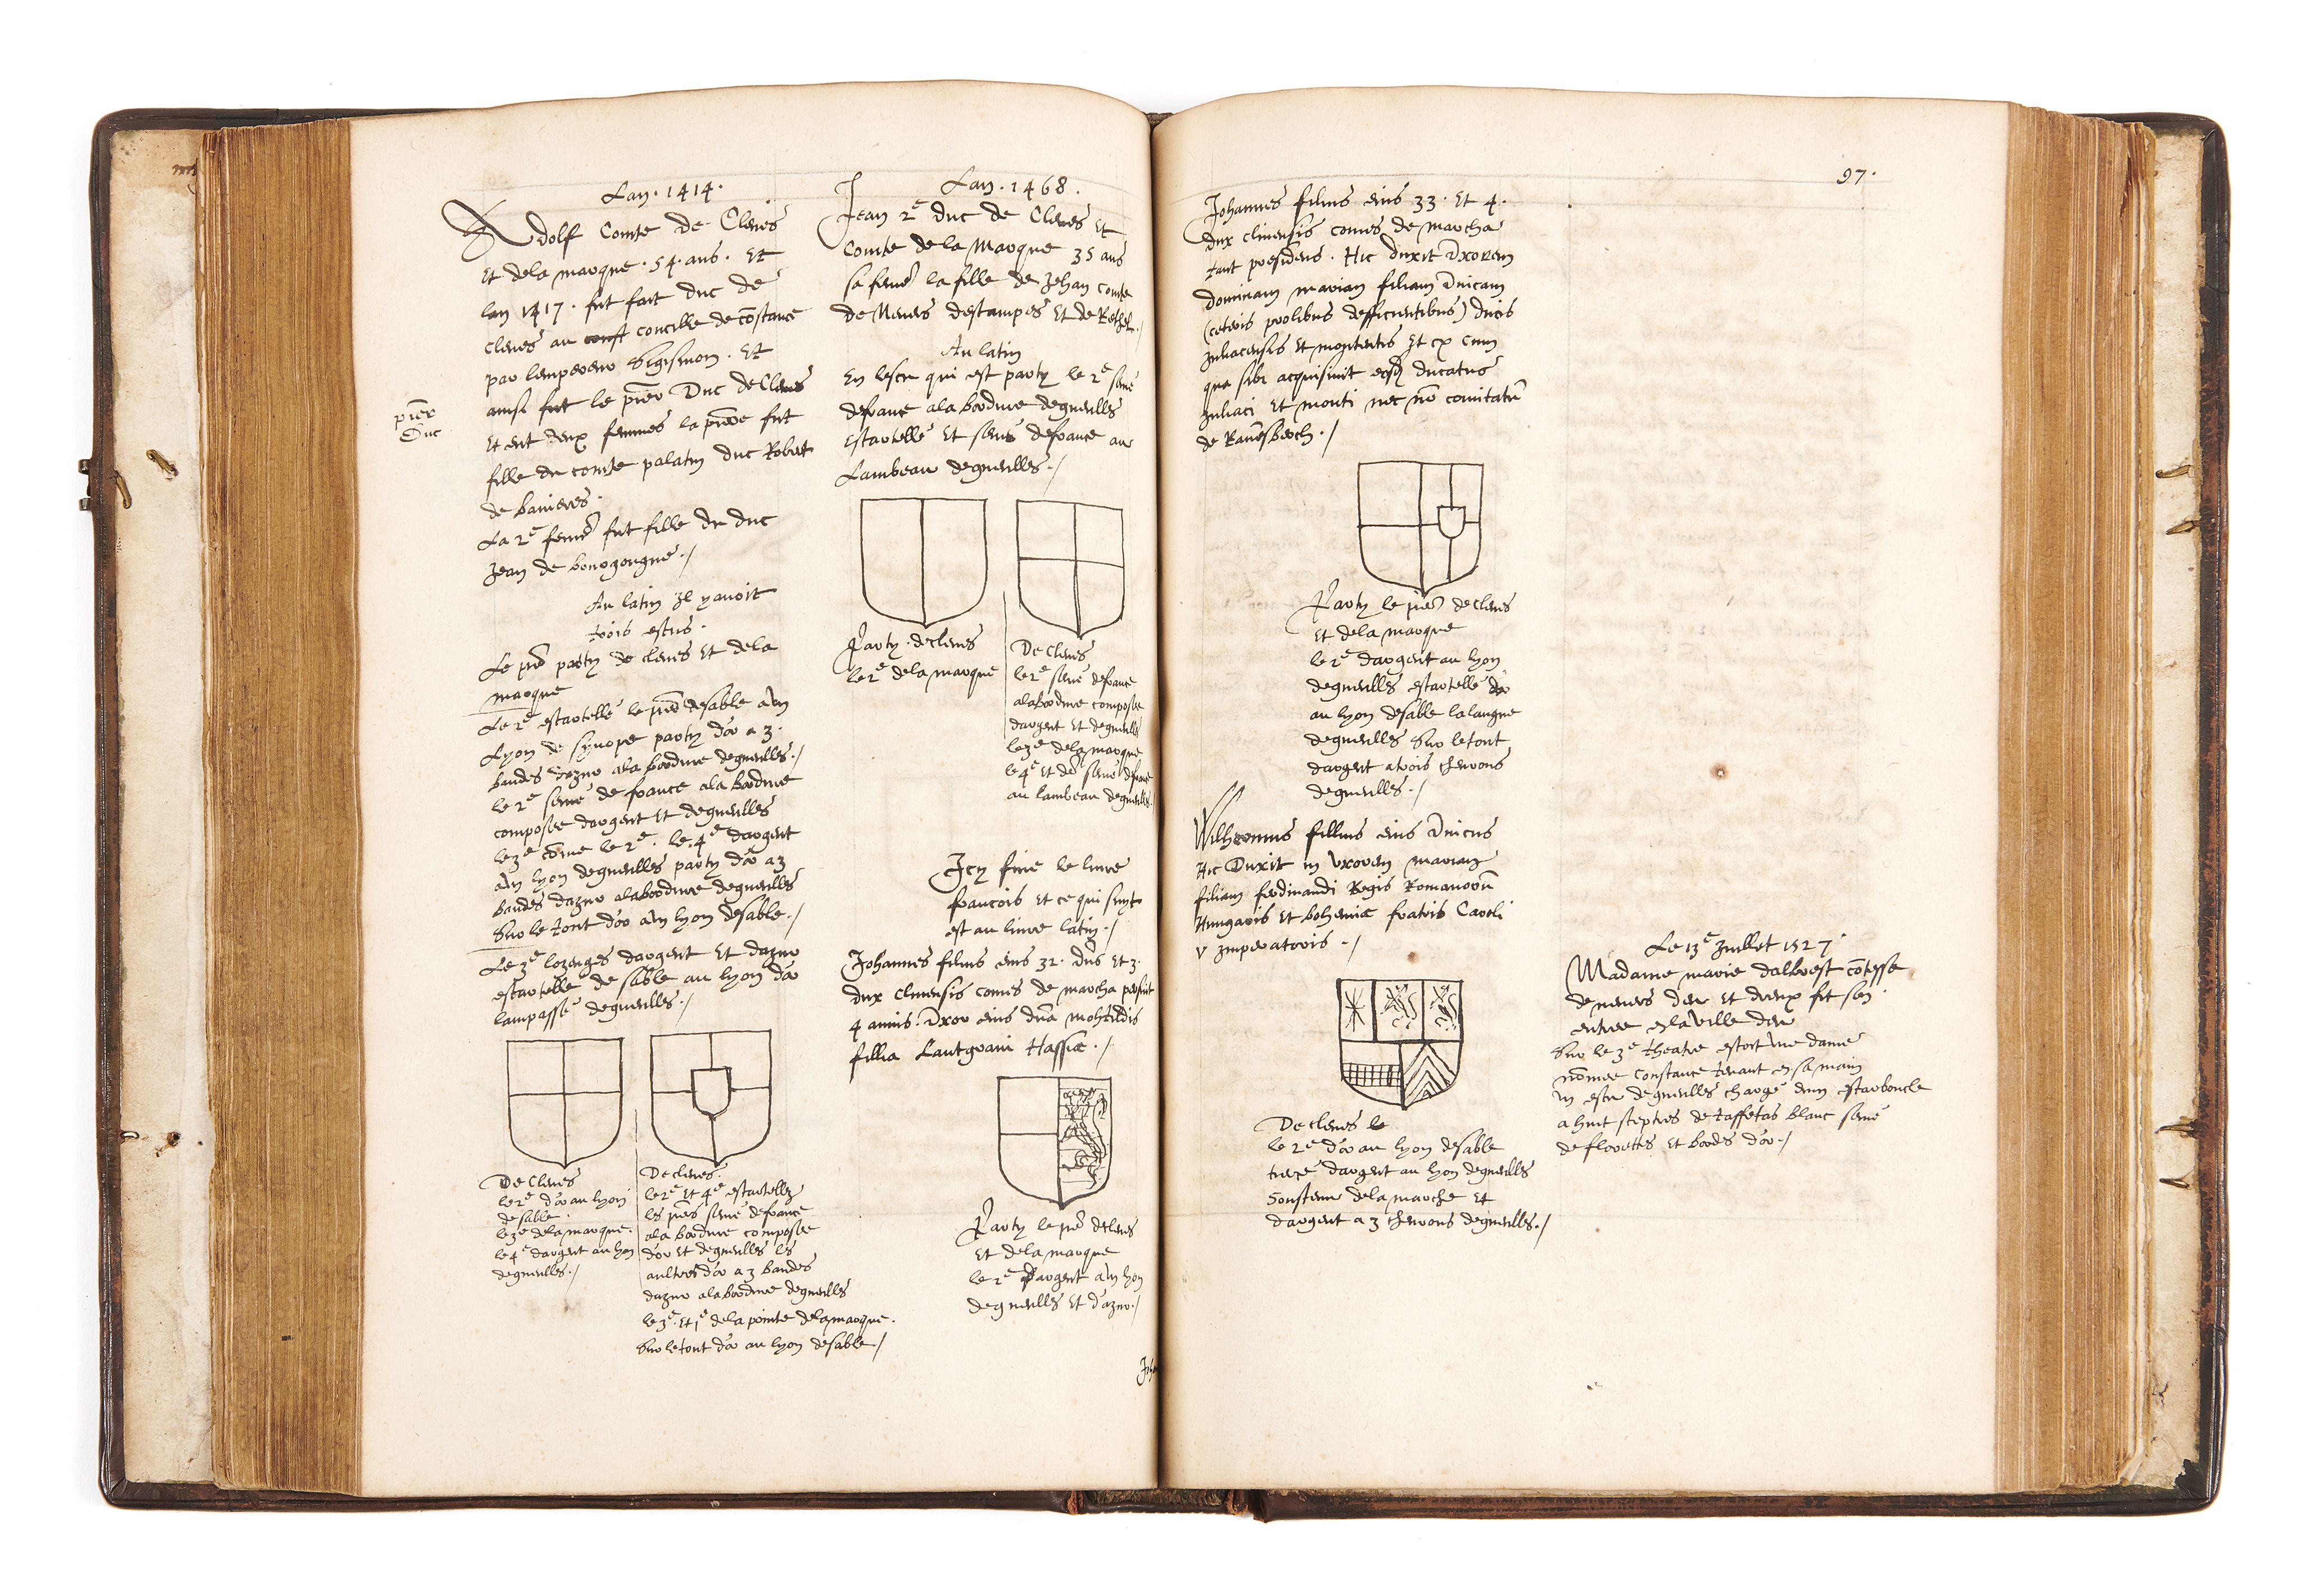 Lan . 1414 .
Adolf Comte de Cleves
Et dela marque . 54 . ans . Et
lan 1417 . fut fait duc de
cleves au const concille de cōstance
par lempereur Sigismon . Et
ainsi fut le p̄ier Duc de Cleves
p̄ier
Duc
Et eut deux femmes la p̄iere fut
fille du comte palatin duc Robert
de bavieres .
La 2e feme fut fille du duc
Jean de bourgongne ./
Au latin Jl yavoit
trois escus .
Le p̄ie party de cleves Et dela
marque
Le 2e escartellé le p̄ier de sable a un
Lyon de synope party dor a 3 .
bandes dazur ala bordure de gueulles ./
le 2e semé de france ala bordure
composee dargent Et de gueulles
le 3e cōme le 2e . le 4e dargent
a un lyon de gueulles party dor a 3
bandes dazur ala bordure de gueulles
Sur le tout dor a un lyon de sable ./
Le 3e lozenges dargent Et dazur
escartelle de sable au lyon dor
lampassé de gueulles ./
De Cleves
le 2e dor au lyon
de sable .
le 3e dela marque .
le 4e dargent au lyon
de gueulles ./
De cleves .
le 2e Et 4e escartellez
les p̄iers semé de france
ala bordure composee
dor Et de gueulles les
aultres dor a 3 bandes
dazur ala bordure de gueulles
le 3e . Et 1e dela pointe dela marque .
Sur le tout dor au lyon de sable ./
Lan . 1468 .
Jean 2e duc de Cleves Et
Comte dela Marque 35 ans
sa feme la fille de Jehan comte
de Nevers destampes Et de Rethel ./
Au latin
En lescu qui est party le 2e semé
de france ala bordure de gueulles
Escartellé Et semé de france au
Lambeau de gueulles ./
Party . de cleves
le 2e dela marque
De Cleves
le 2e semé de france
ala bordure composee
dargent Et de gueulles
le 3e dela marque
le 4e Et der semé de france
au lambeau de gueulles .
Icy fine le livre
francois Et ce qui suyt
est au livre latin ./
Johannes filius eius 32 . dn̄s Et 3 .
dux clivensis comes de marcha prefuit
4 annis . Uxor eius dn̄a mohtildis
fillia Lantgravii Hassie ./
Party le p̄ie de cleves
Et dela marque
le 2e dargent a un lyon
de gueulles Et dazur ./
Joha
97 .
Johannes filius eius 33 . Et 4 .
dux clivensis comes de marcha
Hic duxit Uxorem
dominam mariam filiam Unicam
(ceteris prolibus defficientibus) ducis
Juliacensis Et montensis Et ex cum
qua sibi acquisivit eosq̄ ducatus
Juliaci Et monti nec nō comitatū
de Ravēsberch ./
Party le p̄ie de cleves
Et dela marque
le 2e dargent au lyon
de gueulles escartellé dor
au lyon de sable lalangue
de gueulles Sur le tout
dargent a trois chevrons
de gueulles ./
Wilhermus fillius eius Unicus
Hic Duxit in Uxorem mariam
filiam ferdinandi Regis Romanorū
Hungaris Et bohemie fratris Caroli
V Imperatoris ./
De cleves le
le 2e dor au lyon de sable
tierce dargent au lyon de gueulles
Soustenu dela marche Et
dargent a 3 chevrons de gueulles ./
Le 13e Juillet 1527 .
Madame marie dalbrest cōtesse
de nevers deu Et dreux fit son
entree en la ville deu
Sur le 3e theatre estoit une dame
nōmee Constance tenant en sa main
un escu de gueulles chargé dun escarboucle
a huit sceptres de taffetas blanc semé
de florettes Et bordés dor ./